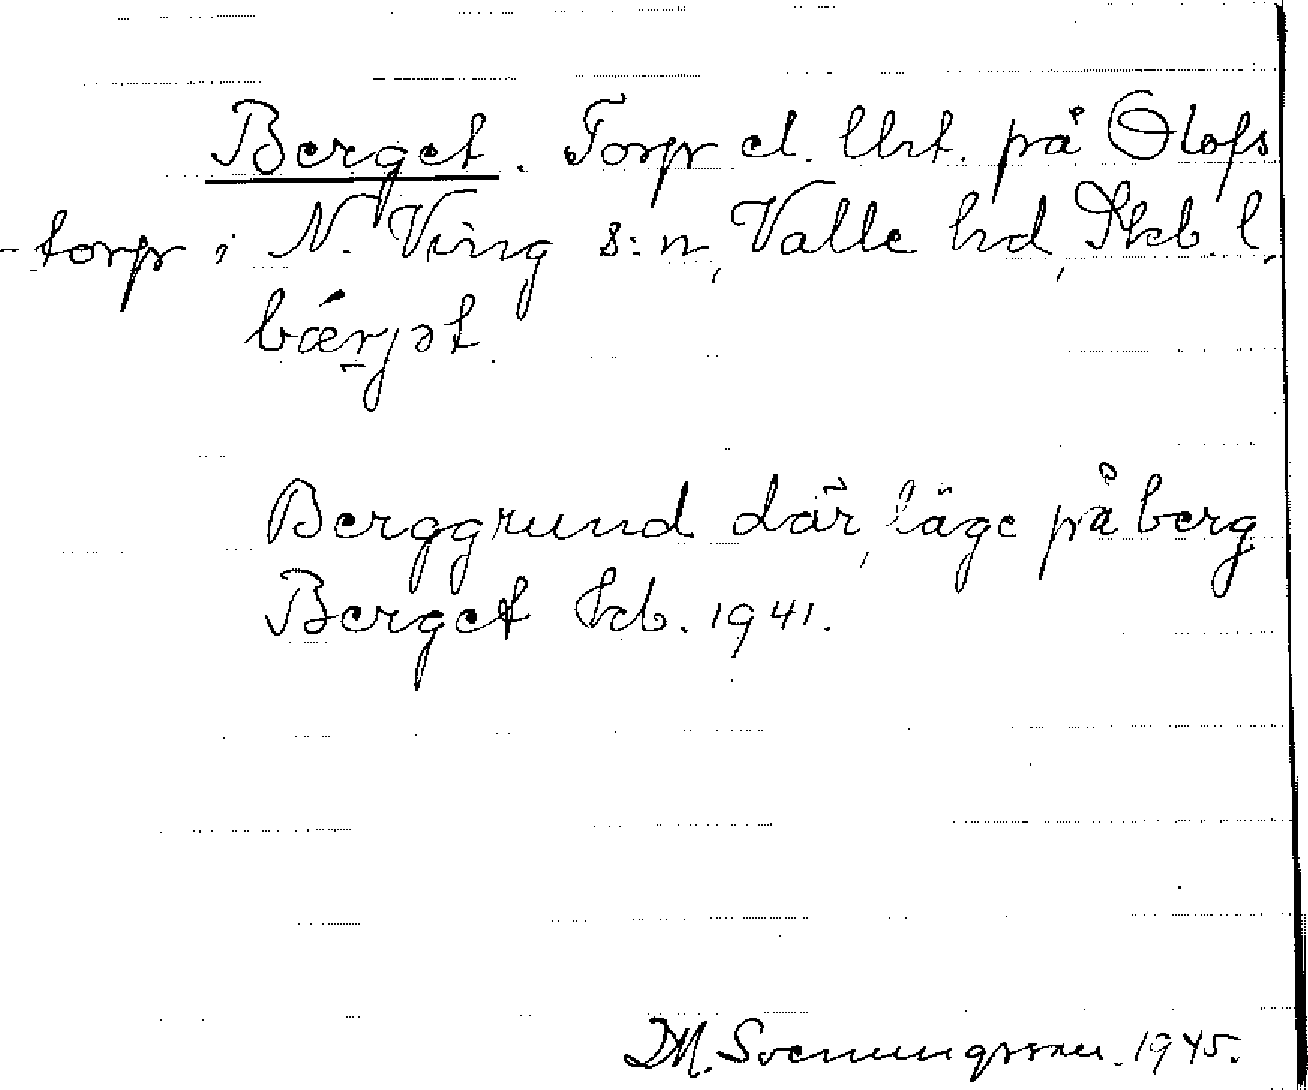 Berget. Torp el. lht. på Olofs
-torp i N. Ving s:n, Valle hd, Skb. l.
bærjət
Berggrund där, läge på berg
Berget kb. 1941.
D.M. Svenungsson. 1945.